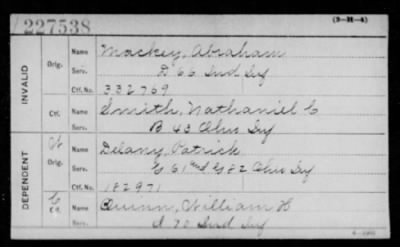 227538
(3-H-4)
INVALID
Orig.
Name Mackey, Abraham
Serv. D 66 Ind Inf
Ctf. No. 332769
Ctf.
Name Smith, Nathaniel C
Serv. B 43 Ohio Inf
DEPENDENT
W
Orig.
Name Delany, Patrick
Serv. G 61 & G 82 Ohio Inf
Ctf. No. 182971
C
Ctf.
Name Quinn, William H
Serv. I 70 Ind Inf